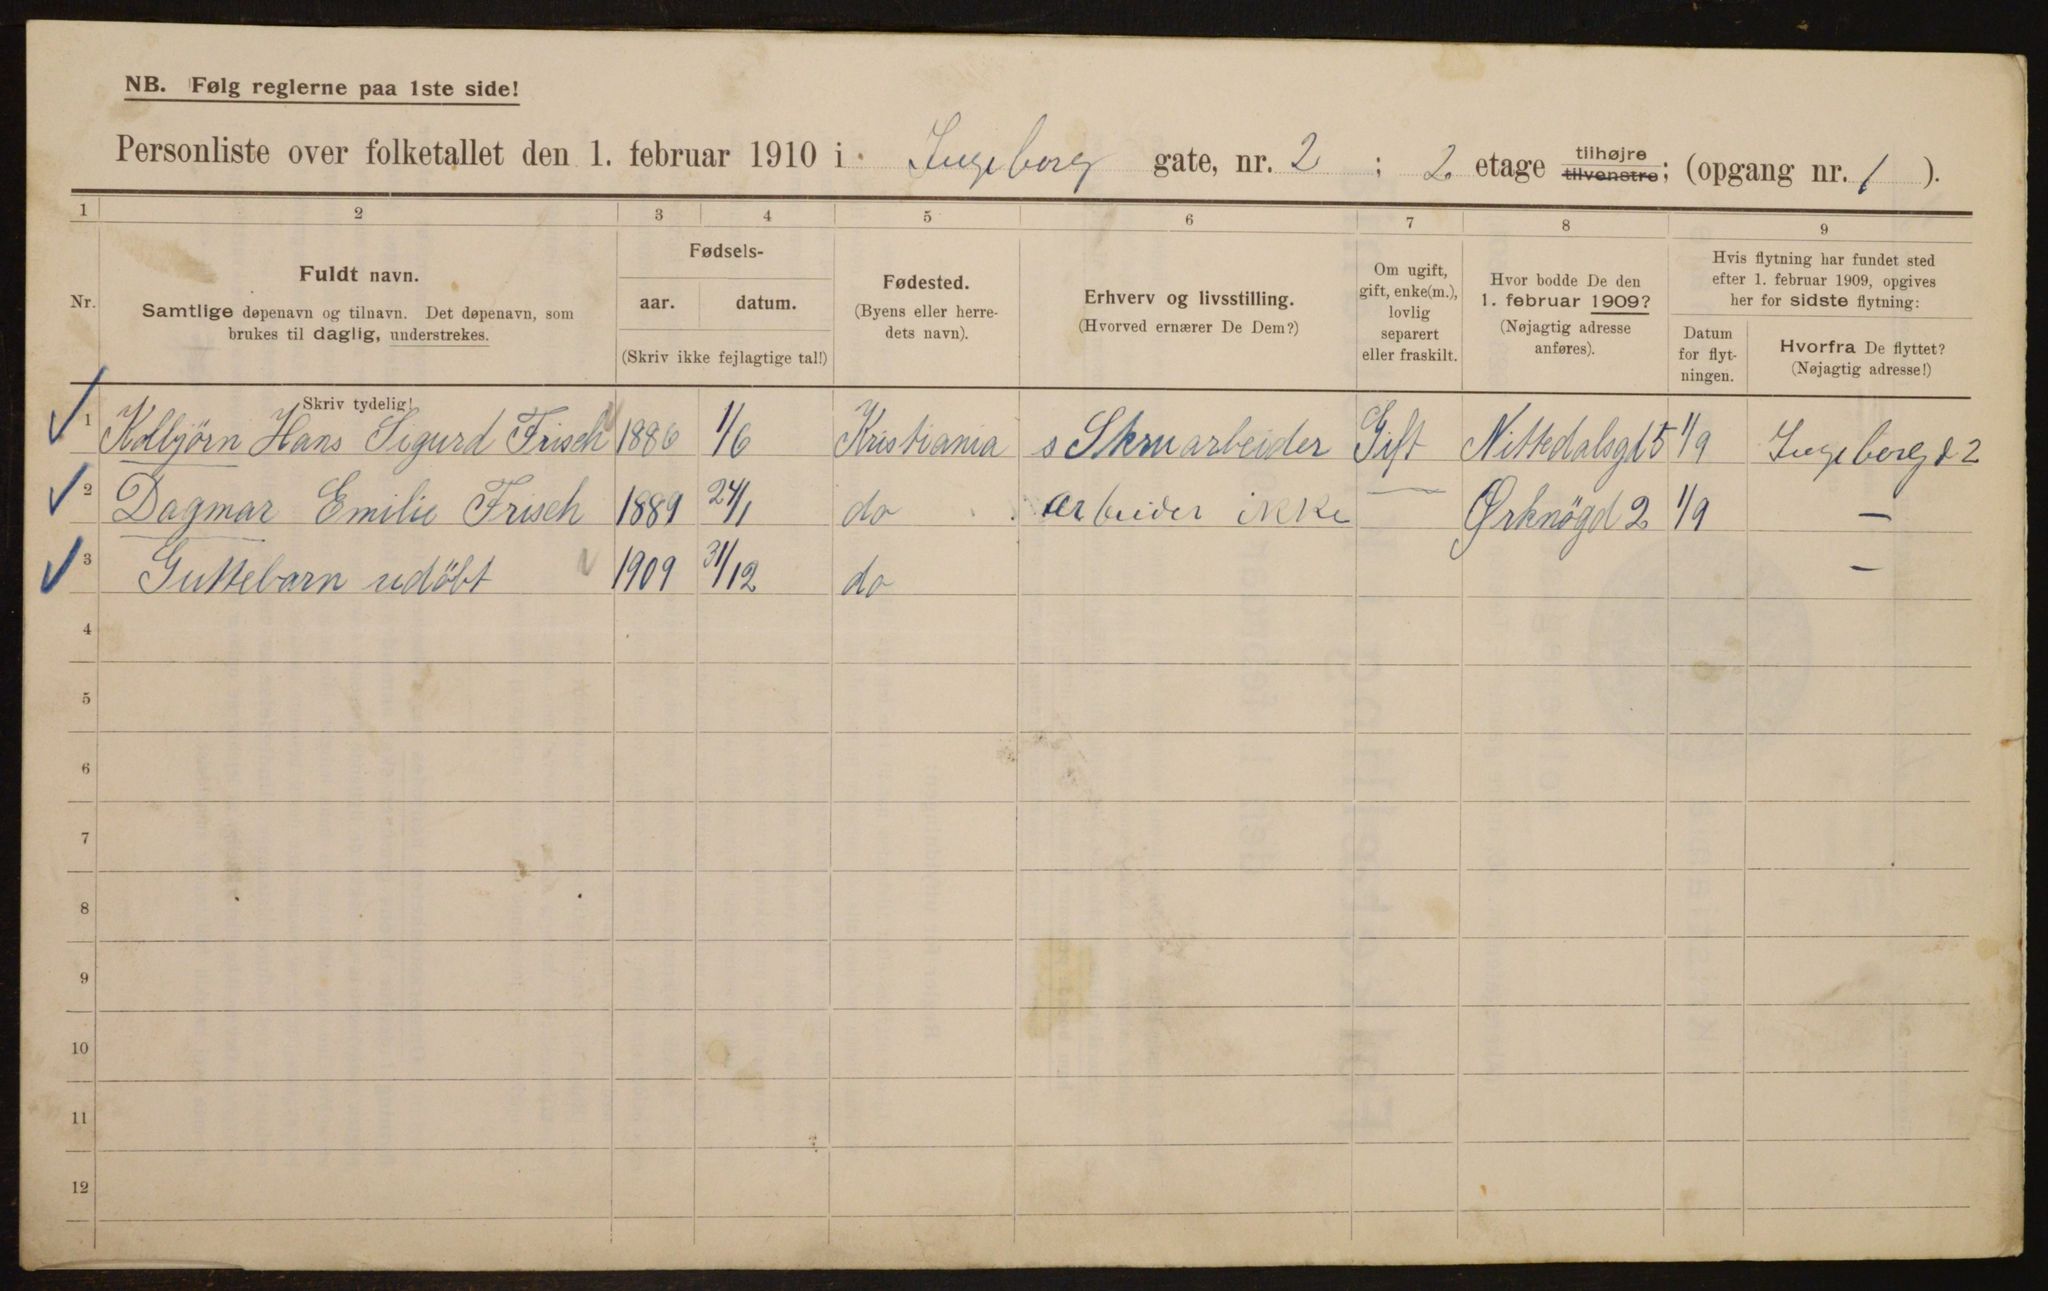 NB. Følg reglerne paa 1ste side!
Personliste over folketallet den 1. februar 1910 i Ingeborg gate, nr. 2 ; 2 etage tilhøjre tilvenstre; (opgang nr. 1 ).
1 2 3 4 5 6 7 8 9
Nr.
Fuldt navn.
Samtlige døpenavn og tilnavn. Det døpenavn, som
brukes til daglig, understrekes.
Fødsels-
aar. datum.
(Skriv ikke fejlagtige tal!)
Fødested.
(Byens eller herre-
dets navn).
Erhverv og livsstilling.
(Hvorved ernærer De Dem?)
Om ugift,
gift, enke(m.),
lovlig
separert
eller fraskilt.
Hvor bodde De den
1. februar 1909?
(Nøjagtig adresse
anføres).
Hvis flytning har fundet sted
efter 1. februar 1909, opgives
her for sidste flytning:
Datum
for flyt-
ningen.
Hvorfra De flyttet?
(Nøjagtig adresse!)
Skriv tydelig!
1 Kolbjörn Hans Sigurd Frisch 1886 1/6 Kristiania s Skruarbeider Gift Nittedalsgd 5 1/9 Ingeborg d 2
2 Dagmar Emilie Frisch 1889 24/1 do arbeider ikke — Ørknögd 2 1/9 —
3 Guttebarn udöbt 1909 31/12 do —
4
5
6
7
8
9
10
11
12